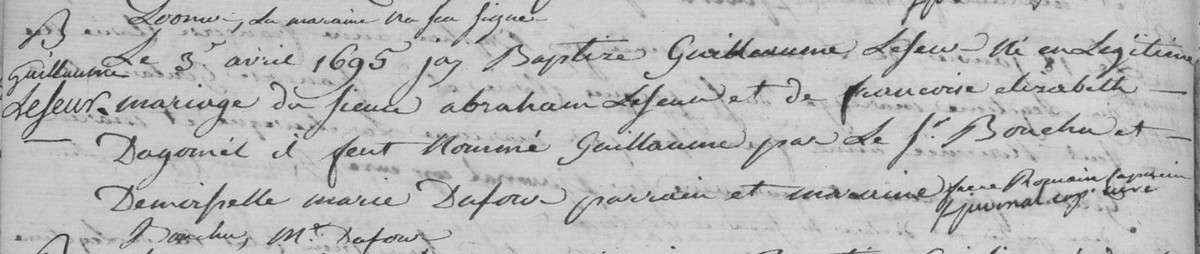 B Loonur, La maraine na sceu signer
Le 3e avril 1695 jay Baptize Guillaume Leseur Né en Legitime
Guillaume
Leseur. mariage du sieur abraham Leseur et de francoise elizabeth —
Dagomel il feut Nommé Guillaume par Le Sr. Bouchu et —
Demoiselle marie Dafour parrain et maraine frere Romain Capucin
Bouchu, M.e Dafour